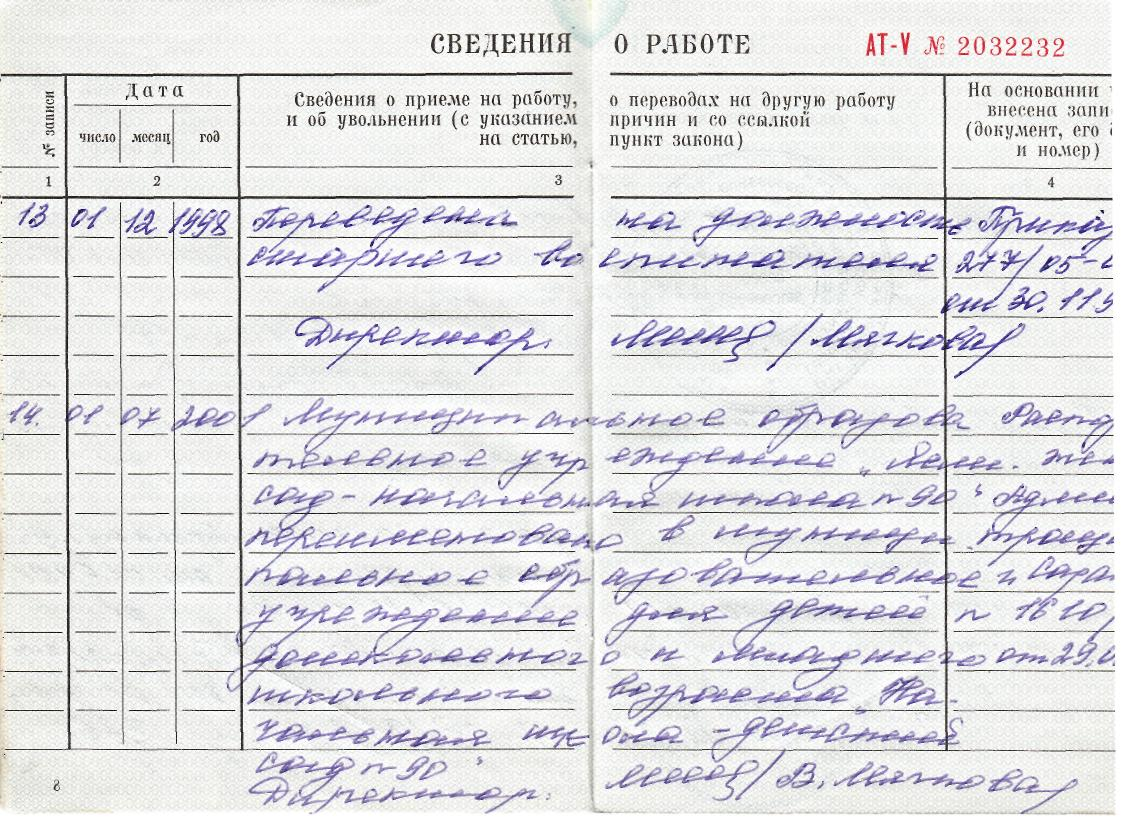 СВЕДЕНИЯ О РАБОТЕ АТ-V № 2032232
№ записи
Дата
число месяц год
Сведения о приеме на работу, о переводах на другую работу
и об увольнении (с указанием причин и со ссылкой
на статью, пункт закона)
На основании ч
внесена запи
(документ, его д
и номер)
1 2 3 4
13 01 12 1998 Переведена на должность Приказ
старшего воспитателя 277/05-
от 30.119
Директор. /Мягкова/
14. 01 07 2001 Муниципальное образова Распор
тельное учреждение „
сад-начальная школа №90" Адми
переименовано в муници
пальное образовательное г Сара
учреждение для детей № 1610
дошкольного и младшего от 29.0
школьного возраста „На-
чальная школа-детский
сад №90"
Директор. / В. Мягкова/
8